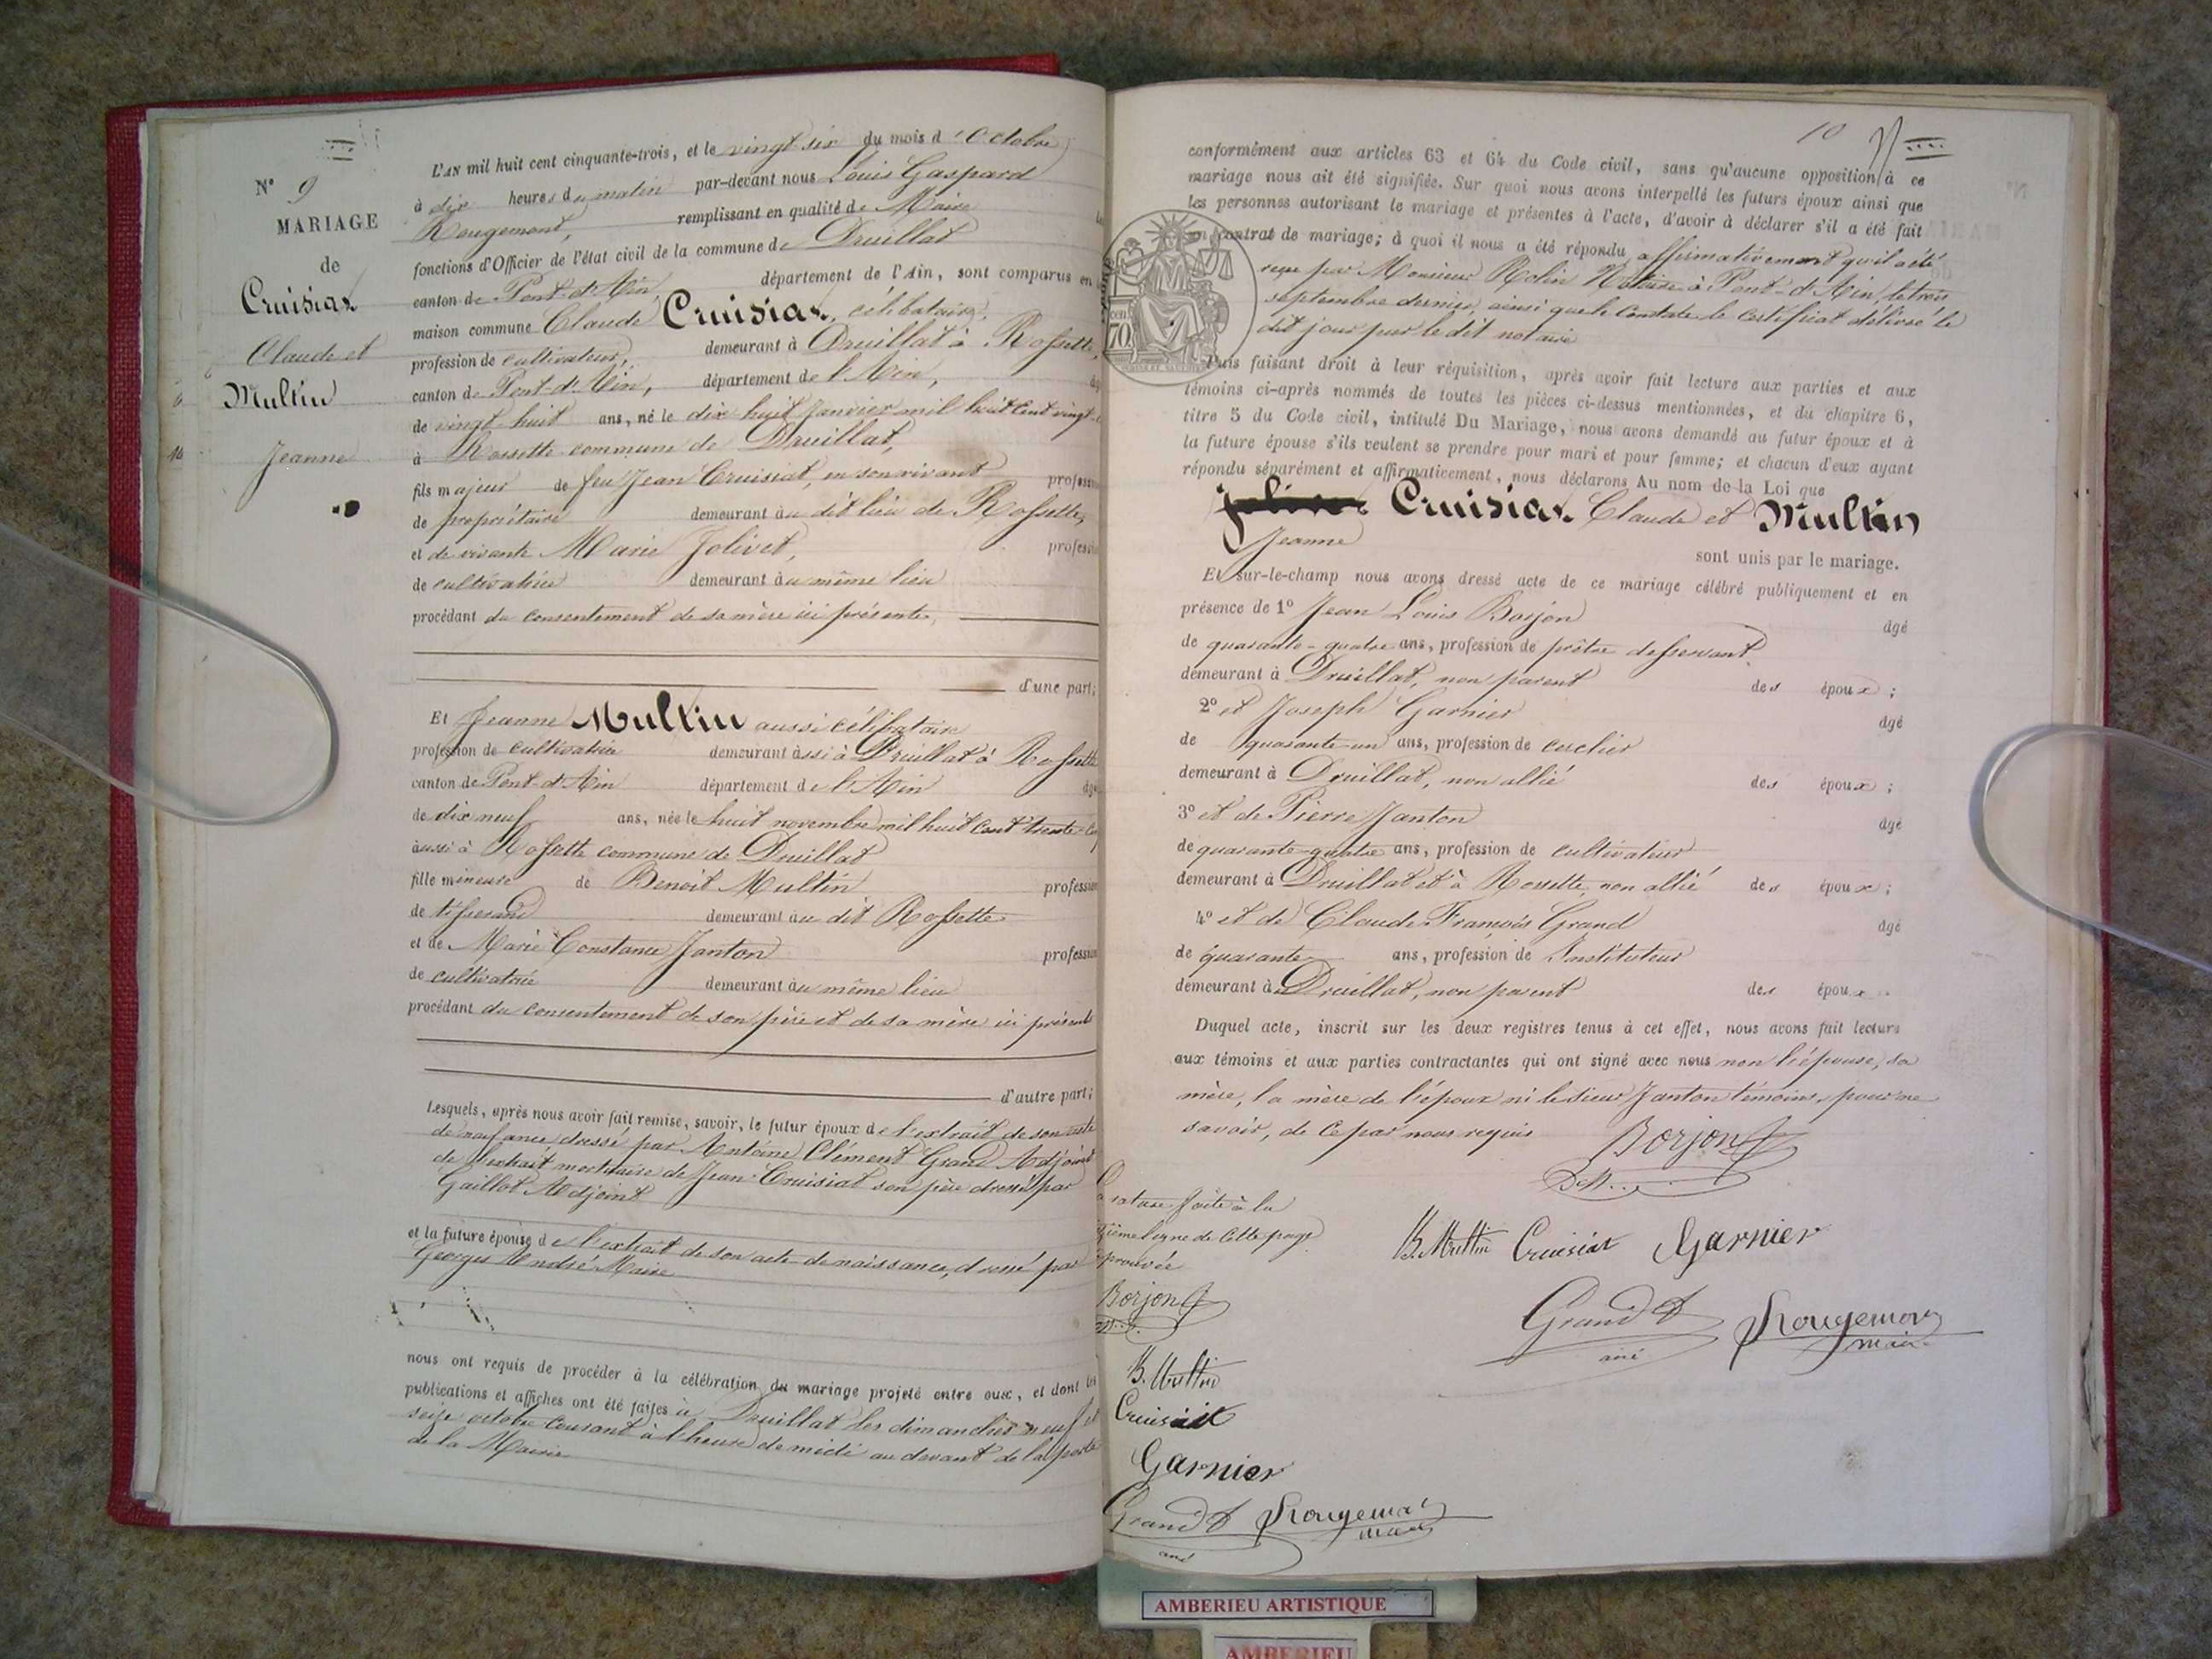 N° 9
MARIAGE
de
Cruisiat
Claude et
Multin
Jeanne
L'AN mil huit cent cinquante-trois, et le vingt six du mois d'Octobre
à dix heures du matin par-devant nous Louis Gaspard
Rougemont, remplissant en qualité de Maire
fonctions d'Officier de l'état civil de la commune de Druillat
canton de Pont-d'Ain département de l'Ain, sont comparus en
maison commune Claude Cruisiat, célibataire,
profession de cultivateur, demeurant à Druillat à Rossette,
canton de Pont-d'Ain, département de l'Ain,
de vingt-huit ans, né le dix huit Janvier mil huit cent vingt
à Rossette commune de Druillat,
fils majeur de feu Jean Cruisiat, en son vivant profession
de propriétaire demeurant au dit lieu de Rossette,
et de vivante Marie Jolivet, profession
de cultivatrice demeurant au même lieu
procédant du consentement de sa mère ici présente,
d'une part;
Et Jeanne Multin aussi célibataire
profession de cultivatrice demeurant aussi à Druillat à Rossette
canton de Pont-d'Ain département de l'Ain âgé
de dix neuf ans, née le huit novembre mil huit cent trente
aussi à Rossette commune de Druillat
fille mineure de Benoit Multin profession
de tisserand demeurant au dit Rossette
et de Marie Constance Janton profession
de cultivatrice demeurant au même lieu
procédant du consentement de son père et de sa mère ici présents
d'autre part;
Lesquels, après nous avoir fait remise, savoir, le futur époux de l'extrait de son acte
de naissance dressé par Antoine Clément Grand Adjoint
de l'extrait mortuaire de Jean Cruisiat son père dressé par
Gaillot Adjoint
et la future épouse de l'extrait de son acte de naissance, dressé par
Georges André Maire
nous ont requis de procéder à la célébration du mariage projeté entre eux, et dont les
publications et affiches ont été faites à Druillat les dimanches neuf et
seize octobre courant à l'heure de midi au devant de la porte
de la Mairie
10
conformément aux articles 63 et 64 du Code civil, sans qu'aucune opposition à ce
mariage nous ait été signifiée. Sur quoi nous avons interpellé les futurs époux ainsi que
les personnes autorisant le mariage et présentes à l'acte, d'avoir à déclarer s'il a été fait
un contrat de mariage; à quoi il nous a été répondu affirmativement qu'il a été
reçu par Monsieur Rolin Notaire à Pont-d'Ain, le trois
septembre dernier, ainsi que le constate le certificat délivré le
dit jour par le dit notaire
70
Puis faisant droit à leur réquisition, après avoir fait lecture aux parties et aux
témoins ci-après nommés de toutes les pièces ci-dessus mentionnées, et du chapitre 6,
titre 5 du Code civil, intitulé Du Mariage, nous avons demandé au futur époux et à
la future épouse s'ils veulent se prendre pour mari et pour femme; et chacun d'eux ayant
répondu séparément et affirmativement, nous déclarons Au nom de la Loi que
Cruisiat Claude et Multin
Jeanne
sont unis par le mariage.
Et sur-le-champ nous avons dressé acte de ce mariage célébré publiquement et en
présence de 1° Jean Louis Borjon âgé
de quarante-quatre ans, profession de prêtre desservant
demeurant à Druillat, non parent des époux;
2° et Joseph Garnier âgé
de quarante-un ans, profession de
demeurant à Druillat, non allié des époux;
3° et de Pierre Janton âgé
de quarante-quatre ans, profession de cultivateur
demeurant à Druillat et à Rossette non allié des époux;
4° et de Claude François Grand âgé
de quarante ans, profession de Instituteur
demeurant à Druillat, non parent des époux
Duquel acte, inscrit sur les deux registres tenus à cet effet, nous avons fait lecture
aux témoins et aux parties contractantes qui ont signé avec nous non l'épouse, sa
mère, la mère de l'époux ni le sieur Janton témoins, pour ne
savoir, de ce par nous requis
Borjon
B. Multin Cruisiat Garnier
Grand
ainé
Rougemont
maire
rature faite à la
ligne de cette page
Borjon
B. Multin
Cruisiat
Garnier
Grand Rougemont
ainé maire
AMBERIEU ARTISTIQUE
AMBERIEU